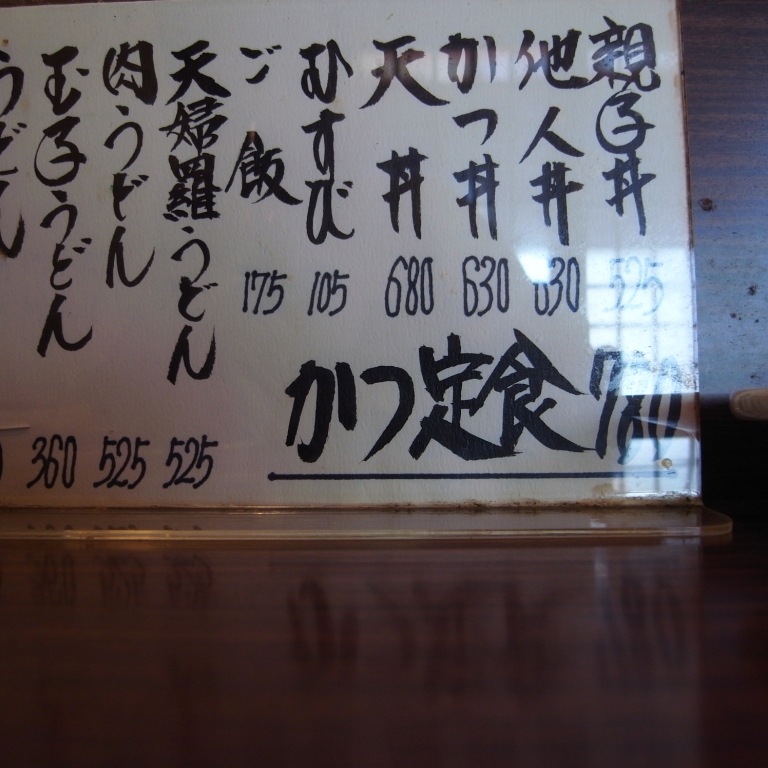 親子丼 525
他人丼 630
かつ丼 630
天丼 680
むすび 105
ご飯 175
天婦羅うどん 525
肉うどん 525
玉子うどん 360
うどん
かつ定食 780